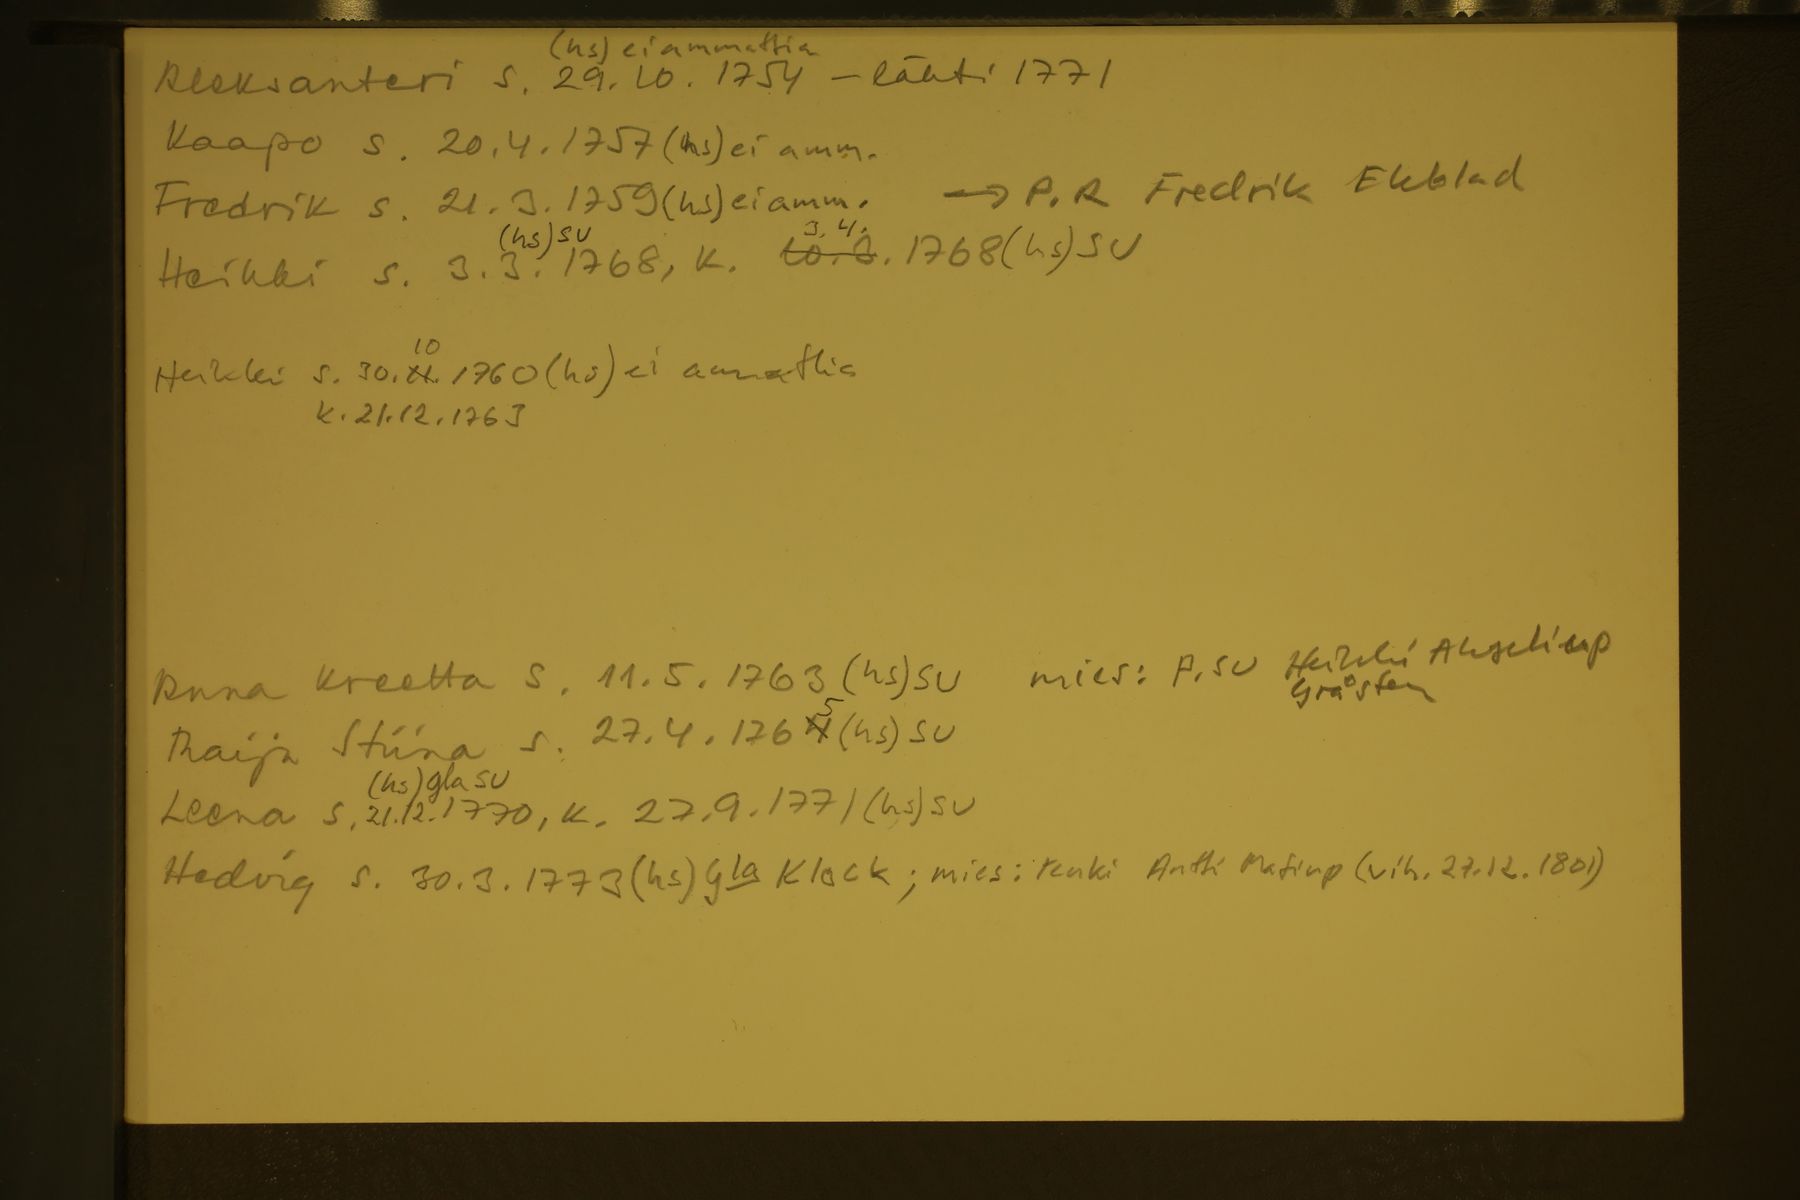 (hs) ei ammattia
Aleksanteri s. 29.10.1754 – lähti 1771
Kaapo s. 20.4.1757 (hs) ei amm.
Fredrik s. 21.3.1759 (hs) ei amm. → P.R Fredrik Ekblad
(hs) SU 3.4.
Heikki s. 3.3.1768, k. 10.8. 1768 (hs) SU
10
Heikki s. 30.11.1760 (hs) ei ammattia
k. 21.12.1763
Anna Kreetta s. 11.5.1763 (hs) SU mies: P.SU Heikki
Gråsten
5
Maija Stiina s. 27.4.1764 (hs) SU
(hs) gla SU
Leena s. 21.12.1770, k. 27.9.1771 (hs) SU
Hedvig s. 30.3.1773 (hs) gla Klock; mies: renki Antti Matinp (vih. 27.12.1801)